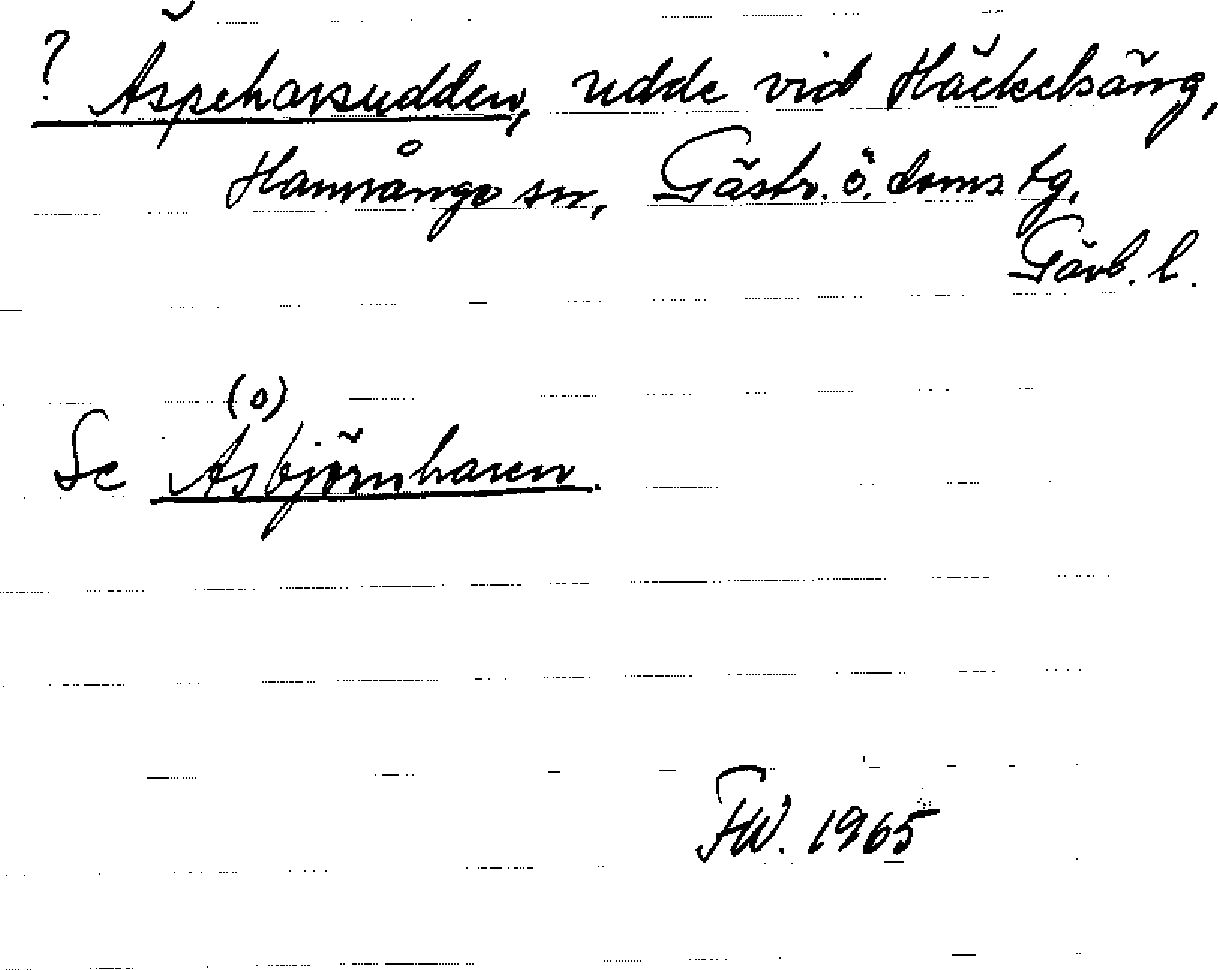 ? Äspeharsudden, udde vid Häckelsäng,
Hamrånge sn, Gästr. ö. doms tg,
Gävb. l.
(o)
Se Asbjörnharen.
FW. 1965